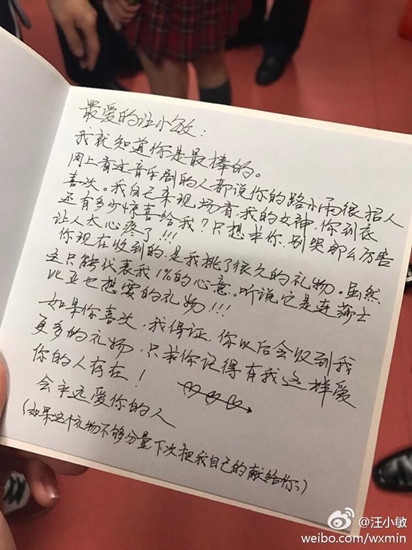 最爱的汪小敏：
我就知道你是最棒的。
网上看过音乐剧的人都说你的路小雨很招人
喜欢。我自己来现场看，我的女神，你到底
还有多少惊喜给我？只想求你，别哭那么厉害
让人太心疼了！！！
你现在收到的，是我挑了很久的礼物。虽然
这只能代表我1%的心意。听说，它是连莎士
比亚也想要的礼物！！！
如果你喜欢，我保证，你以后会收到我
更多的礼物，只求你记得有我这样爱
你的人存在！
会永远爱你的人
(如果这个礼物不够分量下次把我自己的献给你。)
@汪小敏
weibo.com/wxmin